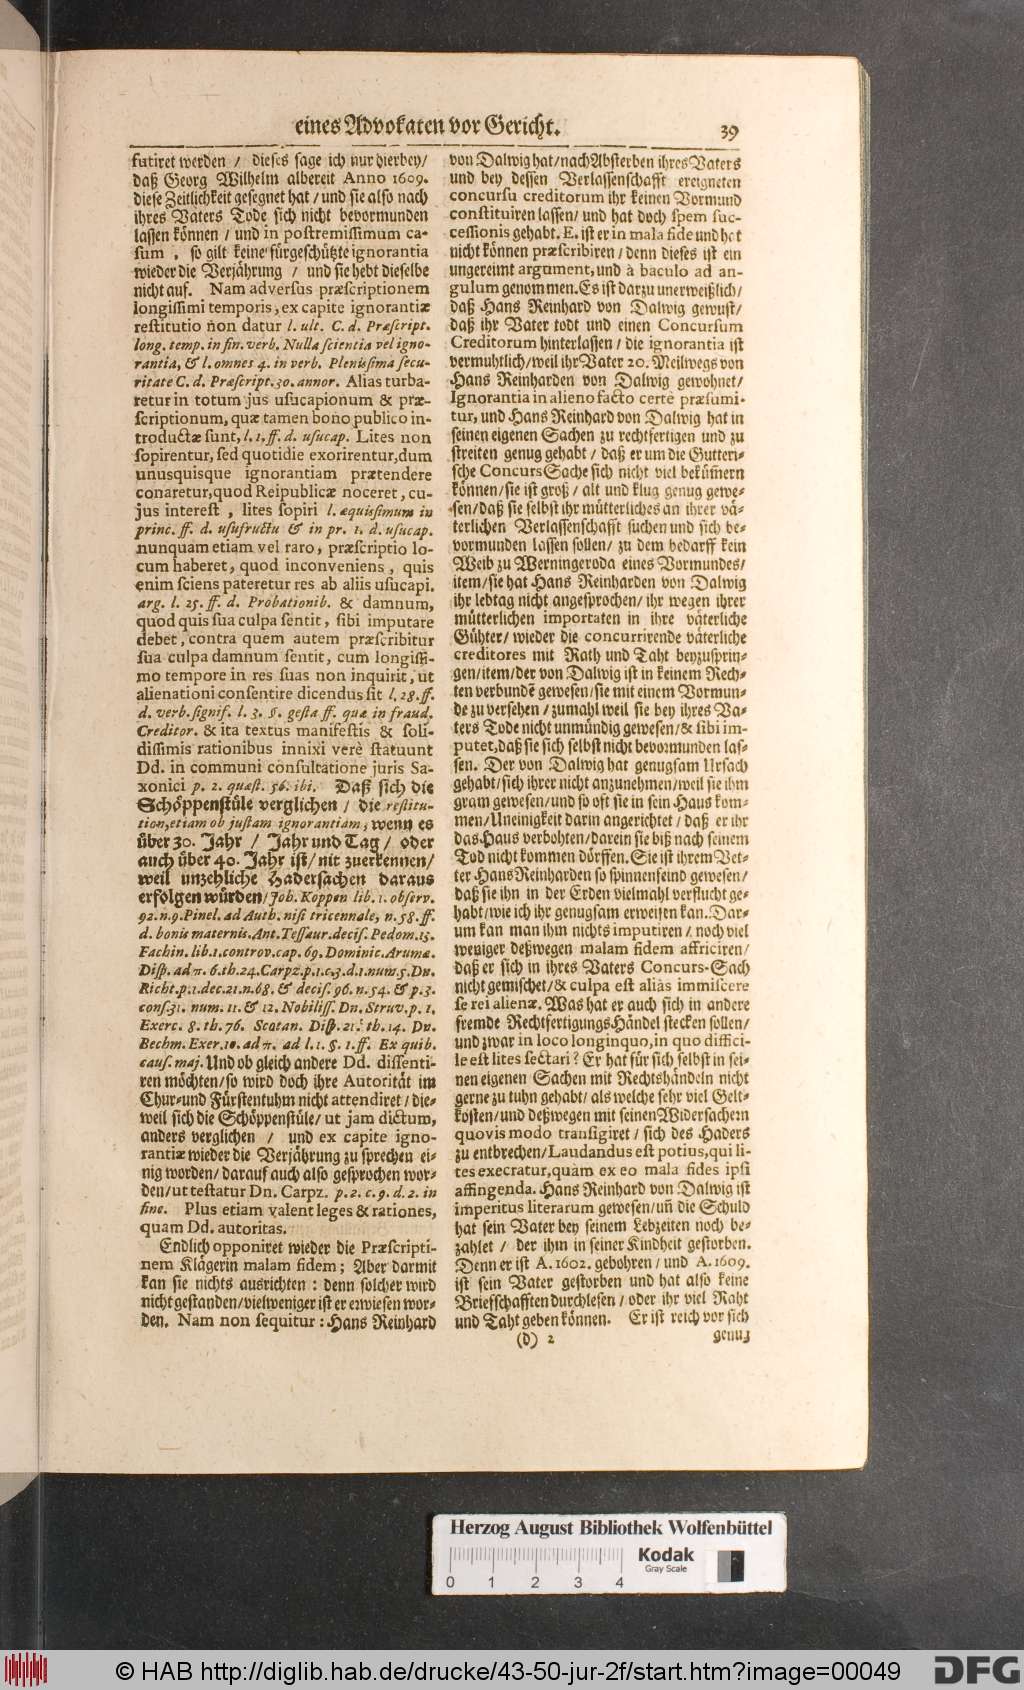 eines Advokaten vor Gericht.
39
futiret werden / dieses sage ich nur hierbey/
daß Georg Wilhelm albereit Anno 1609.
diese Zeitlichkeit gesegnet hat / und sie also nach
ihres Vaters Tode sich nicht bevormunden
lassen können / und in postremissimum ca-
sum , so gilt keine fürgeschützte ignorantia
wieder die Verjährung / und sie hebt dieselbe
nicht auf. Nam adversus præscriptionem
longissimi temporis, ex capite ignorantiæ
restitutio non datur l. ult. C. d. Præscript.
long. temp. in fin. verb. Nulla scientia vel igno-
rantia, & l. omnes 4. in verb. Plenissima secu-
ritate C. d. Præscript. 30. annor. Alias turba-
retur in totum jus usucapionum & præ-
scriptionum, quæ tamen bono publico in-
troductæ sunt, l. 1, ff. d. usucap. Lites non
sopirentur, sed quotidie exorirentur, dum
unusquisque ignorantiam prætendere
conaretur, quod Reipublicæ noceret, cu-
jus interest , lites sopiri l. æquissimum in
princ. ff. d. usufructu & in pr. 1. d. usucap.
nunquam etiam vel raro, præscriptio lo-
cum haberet, quod inconveniens, quis
enim sciens pateretur res ab aliis usucapi.
arg. l. 25. ff. d. Probationib. & damnum,
quod quis sua culpa sentit, sibi imputare
debet, contra quem autem præscribitur
sua culpa damnum sentit, cum longissi-
mo tempore in res suas non inquirit, ut
alienationi consentire dicendus sit l. 28. ff.
d. verb. signif. l. 3. §. gesta ff. quæ in fraud.
Creditor. & ita textus manifestis & soli-
dissimis rationibus innixi verè statuunt
Dd. in communi consultatione juris Sa-
xonici p. 2. quæst. 56. ibi. Daß sich die
Schöppenstüle verglichen / die restitu-
tion, etiam ob justam ignorantiam, wenn es
über 30. Jahr / Jahr und Tag / oder
auch über 40. Jahr ist/ nit zuerkennen/
weil unzehliche Hadersachen daraus
erfolgen würden/ Joh. Koppen lib. 1. observ.
92. n. 9. Pinel. ad Auth. nisi tricennale, n. 58. ff.
d. bonis maternis. Ant. Tessaur. decis. Pedom. 15.
Fachin. lib. 1. controv. cap. 69. Dominic. Arumæ.
Disp. ad π. 6. th. 24. Carpz. p. 1. c. 3. d. 1. num 5. Dn.
Richt. p. 1. dec. 21. n. 68. & decis. 96. n. 54. & p. 3.
cons. 31. num. 11. & 12. Nobiliss. Dn. Struv. p. 1.
Exerc. 8. th. 76. Scatan. Disp. 21. th. 14. Dn.
Bechm. Exer. 10. ad π. ad l. 1. §. 1. ff. Ex quib.
caus. maj. Und ob gleich andere Dd. dissenti-
ren möchten/ so wird doch ihre Autorität im
Chur- und Fürstentuhm nicht attendiret / die-
weil sich die Schöppenstüle/ ut jam dictum,
anders verglichen / und ex capite igno-
rantiæ wieder die Verjährung zu sprechen ei-
nig worden/ darauf auch also gesprochen wor-
den/ ut testatur Dn. Carpz. p. 2. c. 9. d. 2. in
fine. Plus etiam valent leges & rationes,
quam Dd. autoritas.
Endlich opponiret wieder die Præscripti-
nem Klägerin malam fidem; Aber darmit
kan sie nichts ausrichten : denn solcher wird
nicht gestanden/ vielweniger ist er erwiesen wor-
den. Nam non sequitur : Hans Reinhard
von Dalwig hat/ nach Absterben ihres Vaters
und bey dessen Verlassenschafft ereigneten
concursu creditorum ihr keinen Vormund
constituiren lassen/ und hat doch spem suc-
cessionis gehabt. E. ist er in mala fide und hat
nicht können præscribiren / denn dieses ist ein
ungereimt argument, und à baculo ad an-
gulum genommen. Es ist darzu unerweißlich/
daß Hans Reinhard von Dalwig gewust/
daß ihr Vater todt und einen Concursum
Creditorum hinterlassen / die ignorantia ist
vermuhtlich/ weil ihr Vater 20. Meilwegs von
Hans Reinharden von Dalwig gewohnet/
Ignorantia in alieno facto certè præsumi-
tur, und Hans Reinhard von Dalwig hat in
seinen eigenen Sachen zu rechtfertigen und zu
streiten genug gehabt / daß er um die Gutteri-
sche Concurs Sache sich nicht viel bekům̃ern
können/ sie ist groß / alt und klug genug gewe-
sen/ daß sie selbst ihr mütterliches an ihrer vä-
terlichen Verlassenschafft suchen und sich be-
vormunden lassen sollen/ zu dem bedarff kein
Weib zu Werningeroda eines Vormundes/
item/ sie hat Hans Reinharden von Dalwig
ihr lebtag nicht angesprochen/ ihr wegen ihrer
mütterlichen importaten in ihre väterliche
Gühter/ wieder die concurrirende väterliche
creditores mit Rath und Taht beyzusprin-
gen/ item/ der von Dalwig ist in keinem Rech-
ten verbundẽ gewesen/ sie mit einem Vormun-
de zu versehen / zumahl weil sie bey ihres Va-
ters Tode nicht unmündig gewesen/ & sibi im-
putet, daß sie sich selbst nicht bevormunden las-
sen. Der von Dalwig hat genugsam Ursach
gehabt/ sich ihrer nicht anzunehmen/ weil sie ihm
gram gewesen/ und so oft sie in sein Haus kom-
men/ Uneinigkeit darin angerichtet / daß er ihr
das Haus verbohten/ darein sie biß nach seinem
Tod nicht kommen dörffen. Sie ist ihrem Vet-
ter Hans Reinharden so spinnenfeind gewesen/
daß sie ihn in der Erden vielmahl verflucht ge-
habt/ wie ich ihr genugsam erweisen kan. Dar-
um kan man ihm nichts imputiren / noch viel
weniger deßwegen malam fidem affriciren/
daß er sich in ihres Vaters Concurs-Sach
nicht gemischet/ & culpa est aliàs immiscere
se rei alienæ. Was hat er auch sich in andere
fremde Rechtfertigungs-Händel stecken sollen/
und zwar in loco longinquo, in quo diffici-
le est lites sectari ? Er hat für sich selbst in sei-
nen eigenen Sachen mit Rechtshändeln nicht
gerne zu tuhn gehabt/ als welche sehr viel Gelt-
kosten/ und deßwegen mit seinen Widersachern
quovis modo transigiret / sich des Haders
zu entbrechen/ Laudandus est potius, qui li-
tes execratur, quàm ex eo mala fides ipsi
affingenda. Hans Reinhard von Dalwig ist
imperitus literarum gewesen/ uñ die Schuld
hat sein Vater bey seinem Lebzeiten noch be-
zahlet / der ihm in seiner Kindheit gestorben.
Denn er ist A. 1602. gebohren / und A. 1609.
ist sein Vater gestorben und hat also keine
Briefschafften durchlesen / oder ihr viel Raht
und Taht geben können. Er ist reich vor sich
(d) 2
genug
Herzog August Bibliothek Wolfenbüttel
Kodak
Gray Scale
0 1 2 3 4
© HAB http://diglib.hab.de/drucke/43-50-jur-2f/start.htm?image=00049
DFG